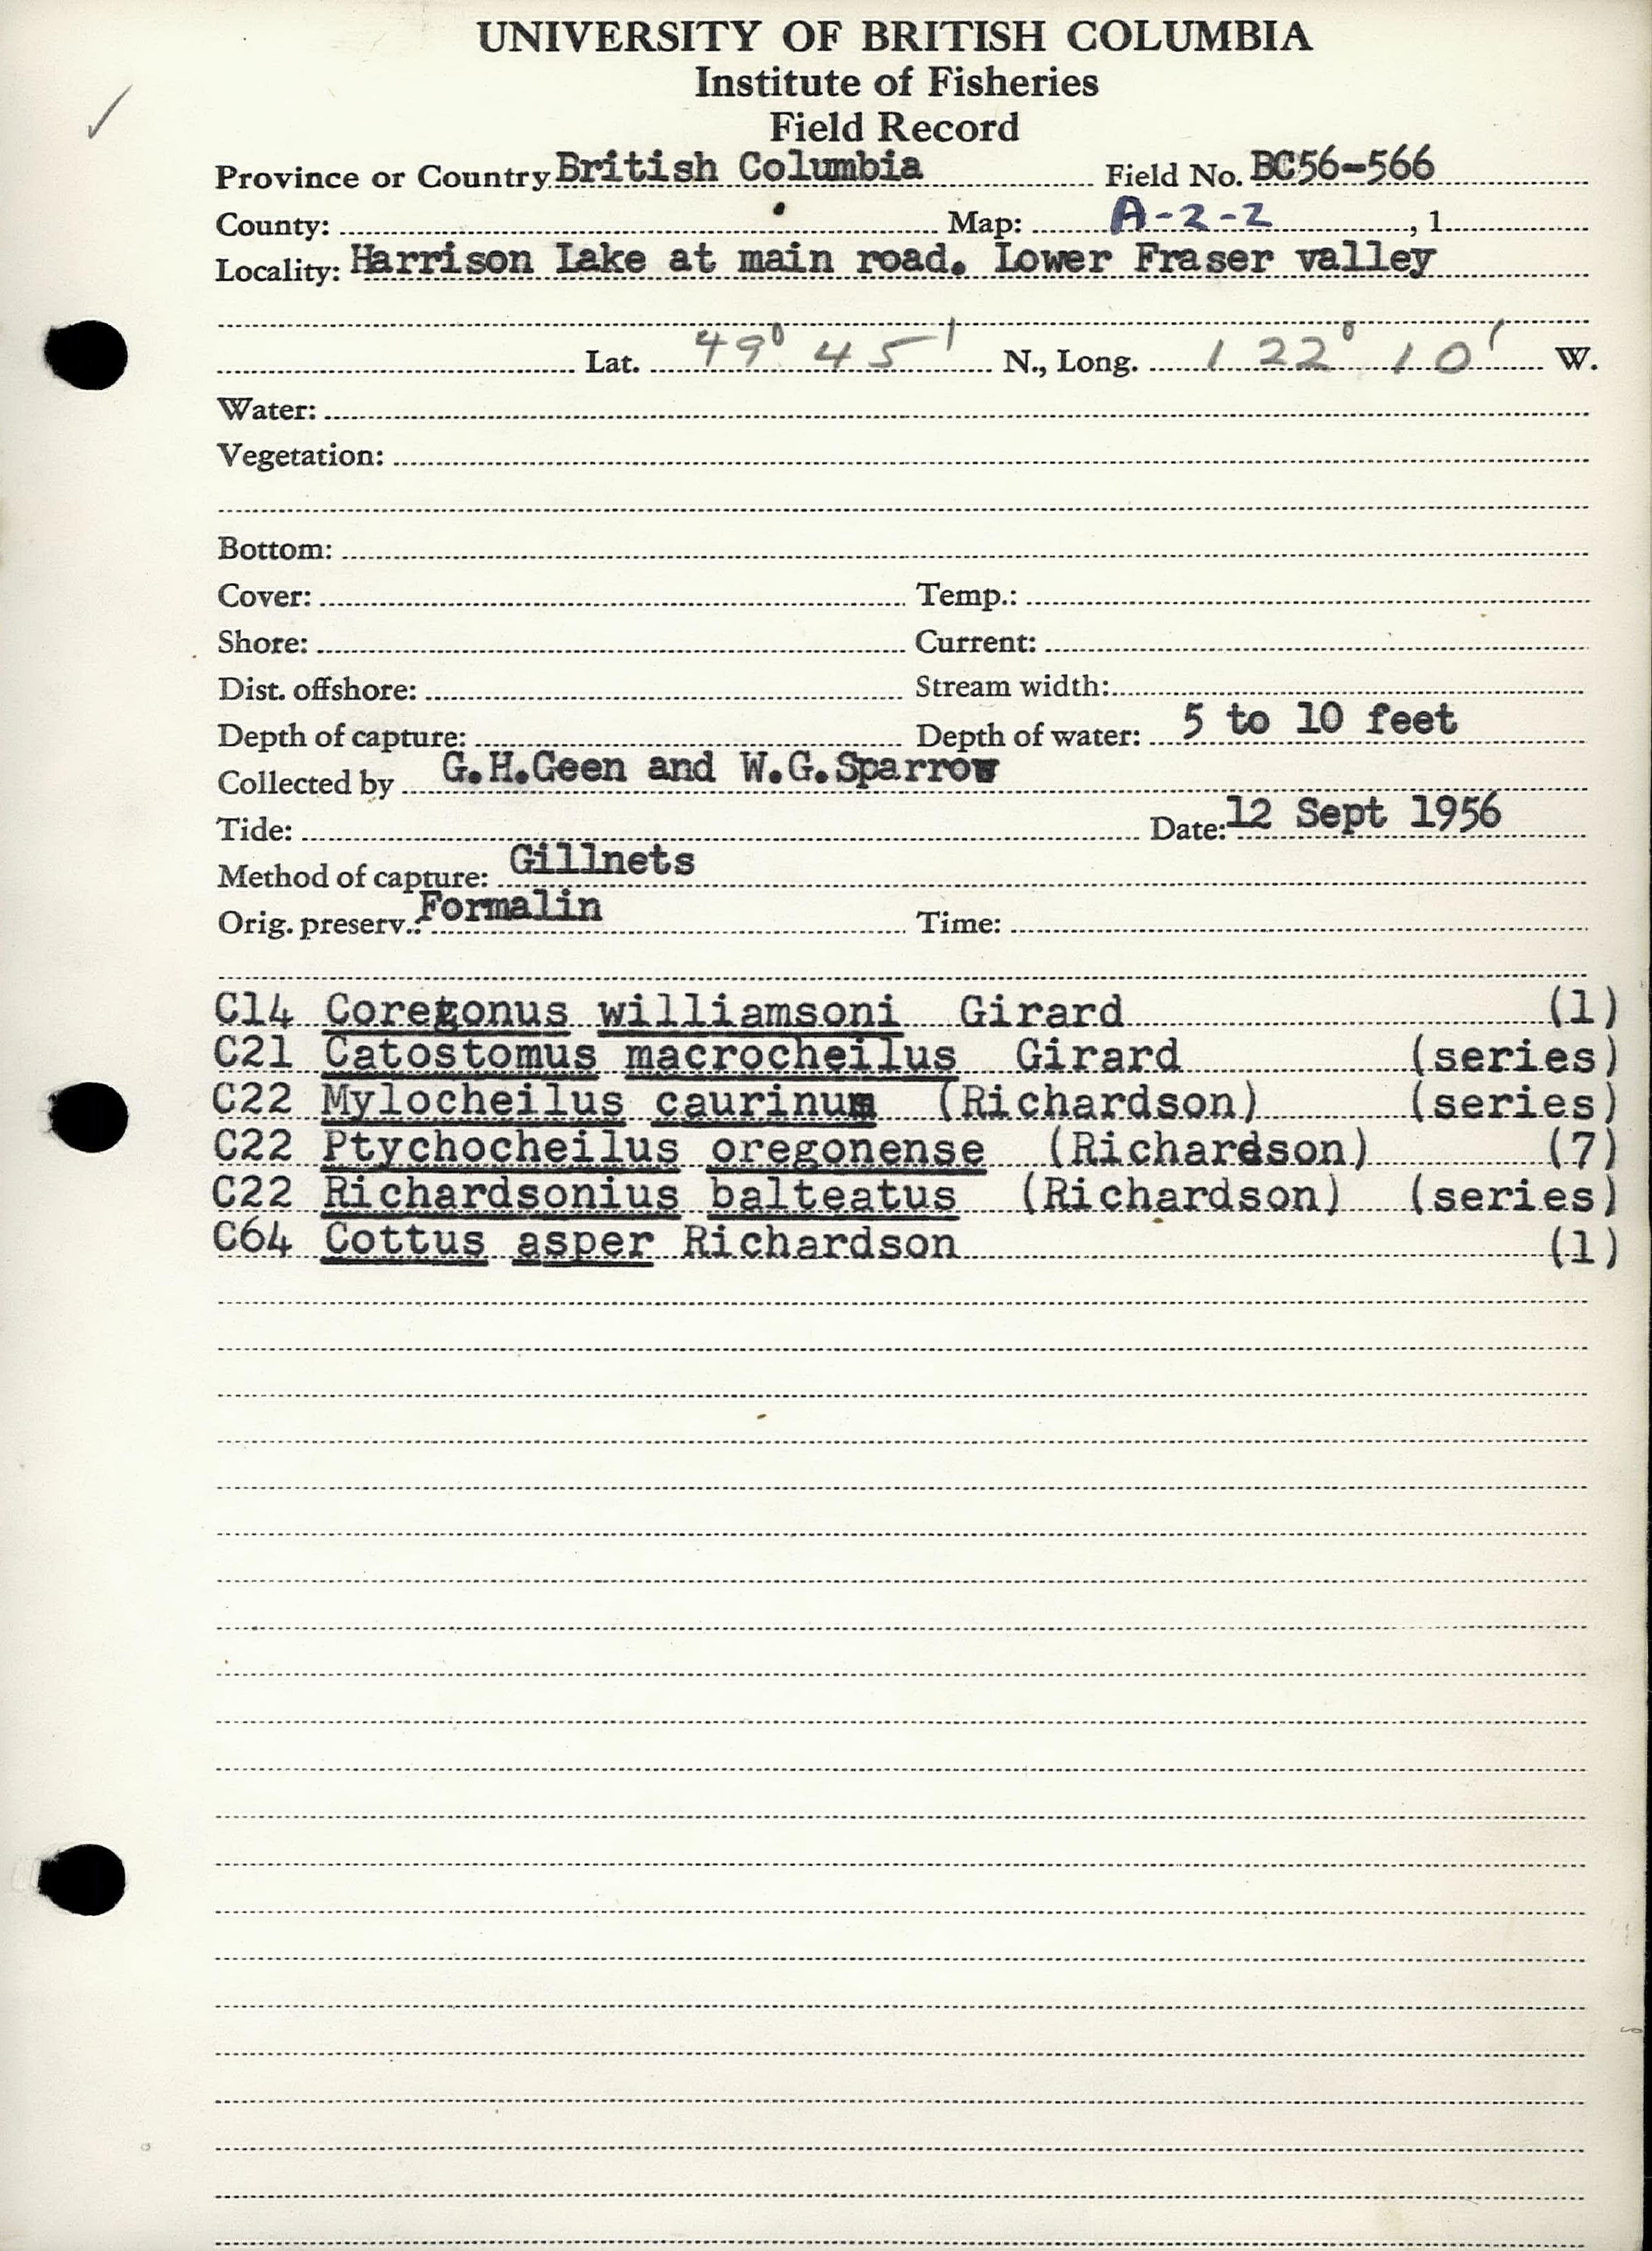 UNIVERSITY OF BRITISH COLUMBIA
Institute of Fisheries
Field Record
✓
Province or Country British Columbia Field No. BC56-566
County: Map: A-2-2, 1
Locality: Harrison Lake at main road. Lower Fraser valley
Lat. 49° 45' N., Long. 122° 10' W.
Water:
Vegetation:
Bottom:
Cover: Temp.:
Shore: Current:
Dist. offshore: Stream width:
Depth of capture: Depth of water: 5 to 10 feet
Collected by G.H.Geen and W.G.Sparrow
Tide: Date: 12 Sept 1956
Method of capture: Gillnets
Orig. preserv.: Formalin Time:
C14 Coregonus williamsoni Girard (1)
C21 Catostomus macrocheilus Girard (series)
C22 Mylocheilus caurinus (Richardson) (series)
C22 Ptychocheilus oregonense (Richardson) (7)
C22 Richardsonius balteatus (Richardson) (series)
C64 Cottus asper Richardson (1)